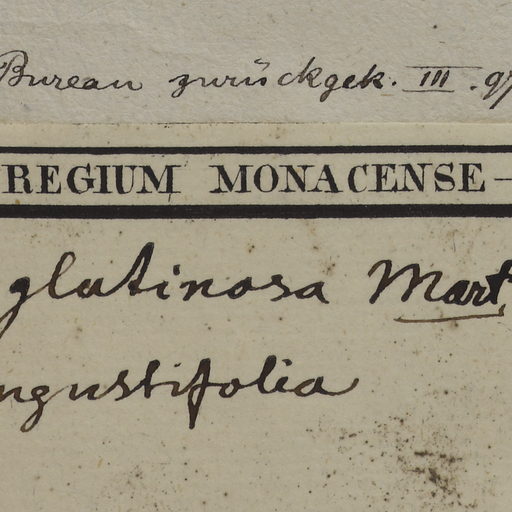 Bureau zurückgek. III. 97
REGIUM MONACENSE —
glutinosa Mart
ngustifolia